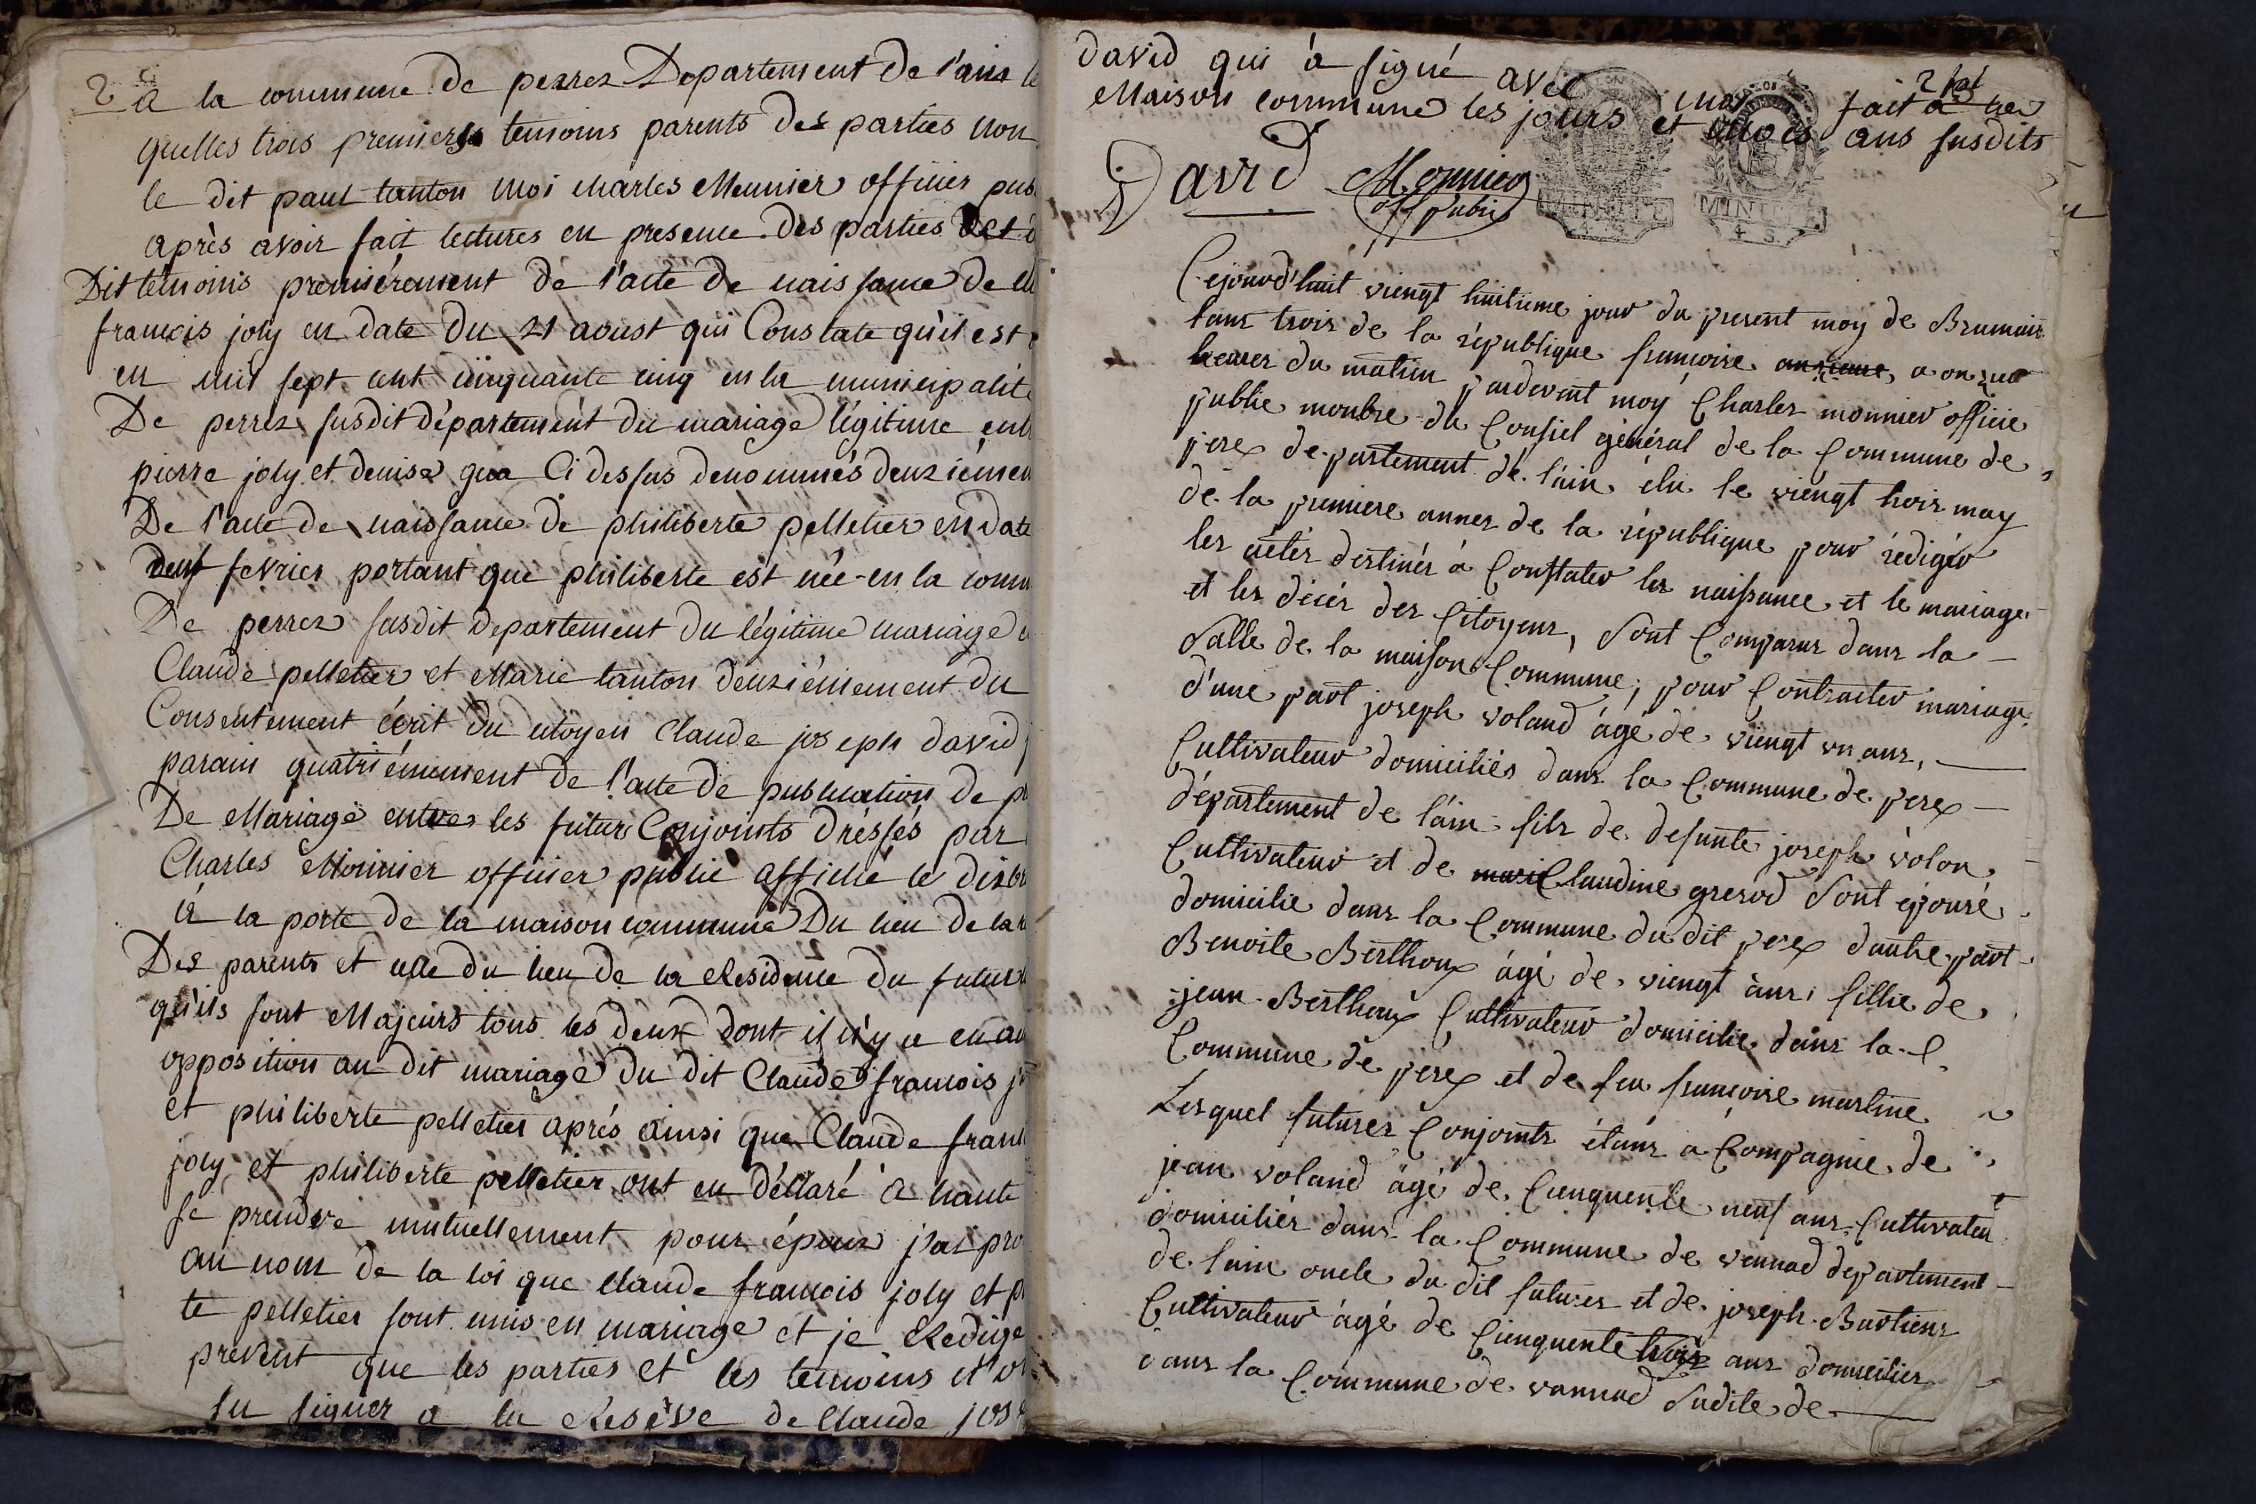 2
a la commune de perrex Departement de l'ain le
quelles trois premiers temoins parents des parties non
le dit paul tanton moi charles Meunier officier pub
après avoir fait lectures en presence des parties et d
Dit temoins premièrement de l'acte de naissance de
francois joly en date du 21 aoust qui Constate qu'il est
en mil sept cent cinquante cinq en la municipalité
De perrex susdit département du mariage légitime ent
pierre joly et denise goa Ci dessus denommés deuziémen
De l'acte de naissance de philiberte pelletier en date
neuf fevrier portant que philiberte est née en la comm
De perrex susdit departement du légitime mariage
Claude pelletier et Marie tanton deuziémement du
Consentement écrit du citoyen Claude joseph david
parain quatriémement de l'acte de publication de p
De Mariage entre les futurs Conjoints dréssés par
Charles Monnier officier public affiche le dix
a la porte de la maison commune Du lieu de la
Des parents et celle du lieu de la Residence du futur
qu'ils sont Majeurs tous les deux dont il n'y a eu au
opposition au dit mariage du dit Claude francois j
et philiberte pelletier aprés ainsi que Claude fran
joly et philiberte pelletier ont eu déclaré a haute
se prendre mutuellement pour épouz j'ai pro
au nom de la loi que Claude francois joly et p
te pelletier sont unis en mariage et je Redige
present que les parties et les temoins n'o
su signer a la Reserve de Claude jos
david qui à signé avec moy fait a la
Maison commune les jours et mois ans susdits
David Monnier
off public
MINUTE
4 S.
MINUTE
4 S.
Cejourd'huit viengt huitieme jour du present moy de Brumair
lans trois de la république francoise a onze
heures du matin pardevant moy Charles monnier officie
public membre du Consiel général de la Commune de
perex departement de l'ain élu le viengt trois may
de la premiere annes de la république pour rédigér
les actés destinés à Constater les naissance et le mariage
et les décés des Citoyens, sont Comparus dans la
salle de la maison Commune, pour Contracter mariage
d'une part joseph voland âgé de viengt un ans,
Cultivateur domiciliés dans la Commune de perex
département de l'ain fils de defunte joseph volon
Cultivateur et de Claudine gresod sont épousé
domicilie dans la Commune du dit perex dautre part
Benoite Berthoux âgé de viengt ans fillie de
jean Berthoux Cultivateur domicilie dans la C
Commune de perex et de feu francoise martine
Lesquel futures Conjoints étans a Compagnie de
jean voland âgé de Cienquente neuf ans Cultivateur
domiciliés dans la Commune de vennad departement
de lain oncle du dit futures et de joseph Bastiens
Cultivateur âgé de Cienquente trois ans domicilies
dans la Commune de vannad sudite de